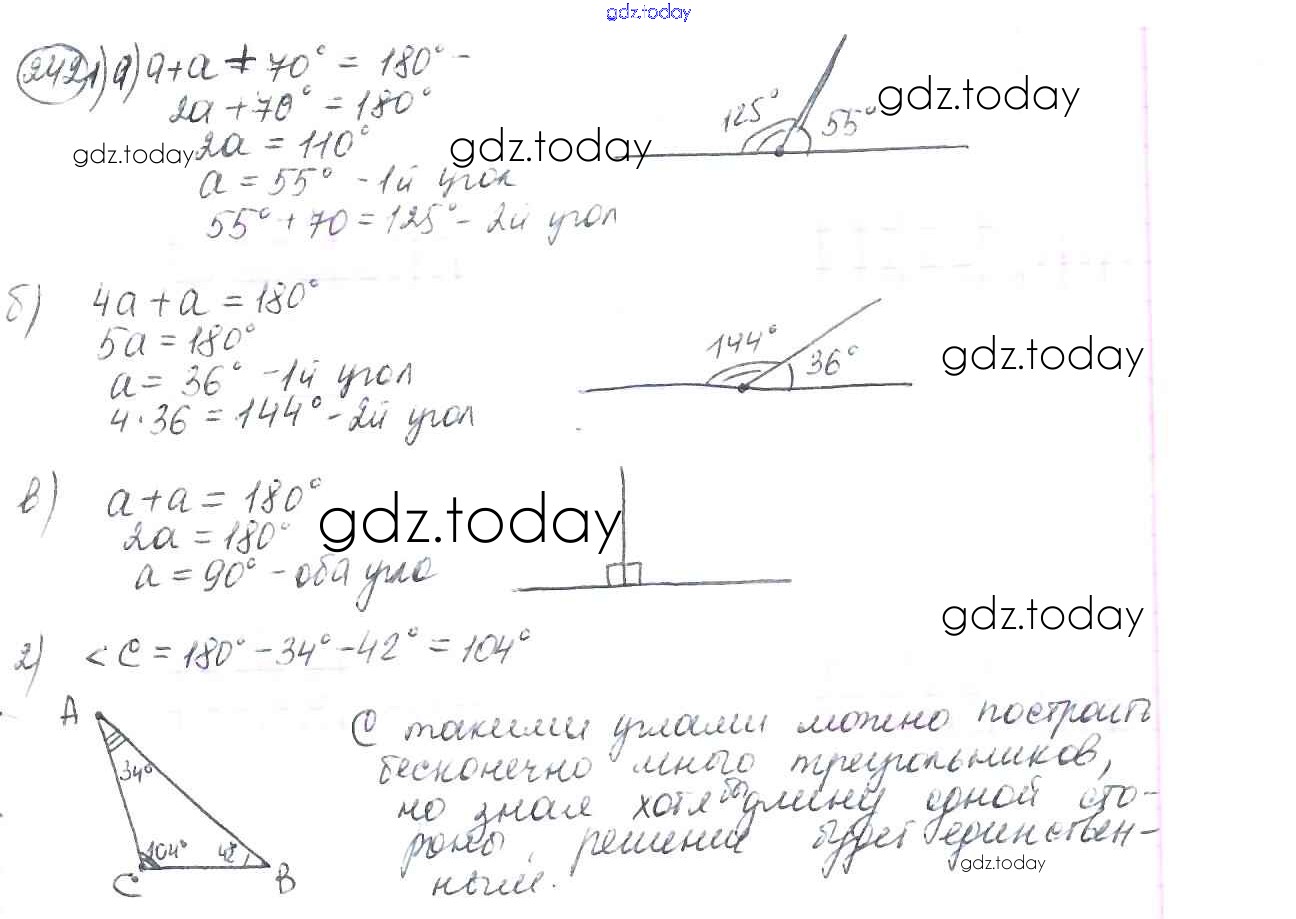 gdz.today
242 1) а) a + a + 70° = 180° -
2a + 70° = 180°
2a = 110°
a = 55° - 1й угол
55° + 70 = 125° - 2й угол
125° 55°
gdz.today
gdz.today
gdz.today
б) 4a + a = 180°
5a = 180°
a = 36° - 1й угол
4 · 36 = 144° - 2й угол
144° 36°
gdz.today
в) a + a = 180°
2a = 180°
a = 90° - оба угла
gdz.today
gdz.today
г) < C = 180° - 34° - 42° = 104°
A
34°
104° 42°
C B
С такими углами можно построить
бесконечно много треугольников,
но зная хотя бы длину одной сто-
роны, решение будет единствен-
ным.
gdz.today